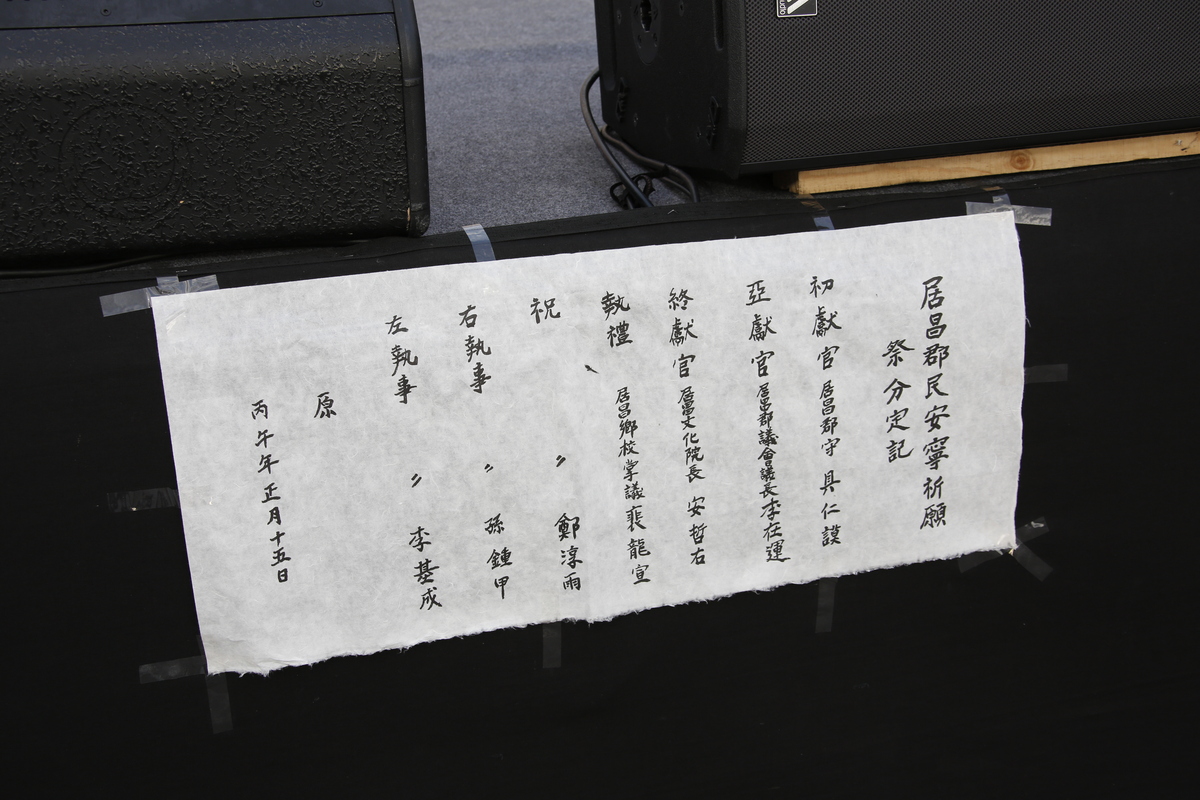 居昌郡民安寧祈願
祭分定記
初獻官 居昌郡守 具仁謨
亞獻官 居昌郡議會議長 李在運
終獻官 居昌文化院長 安哲右
執禮 居昌鄉校掌議 裵龍宣
祝 〃 鄭淳雨
右執事 〃 孫鍾甲
左執事 〃 李基成
原
丙午年正月十五日